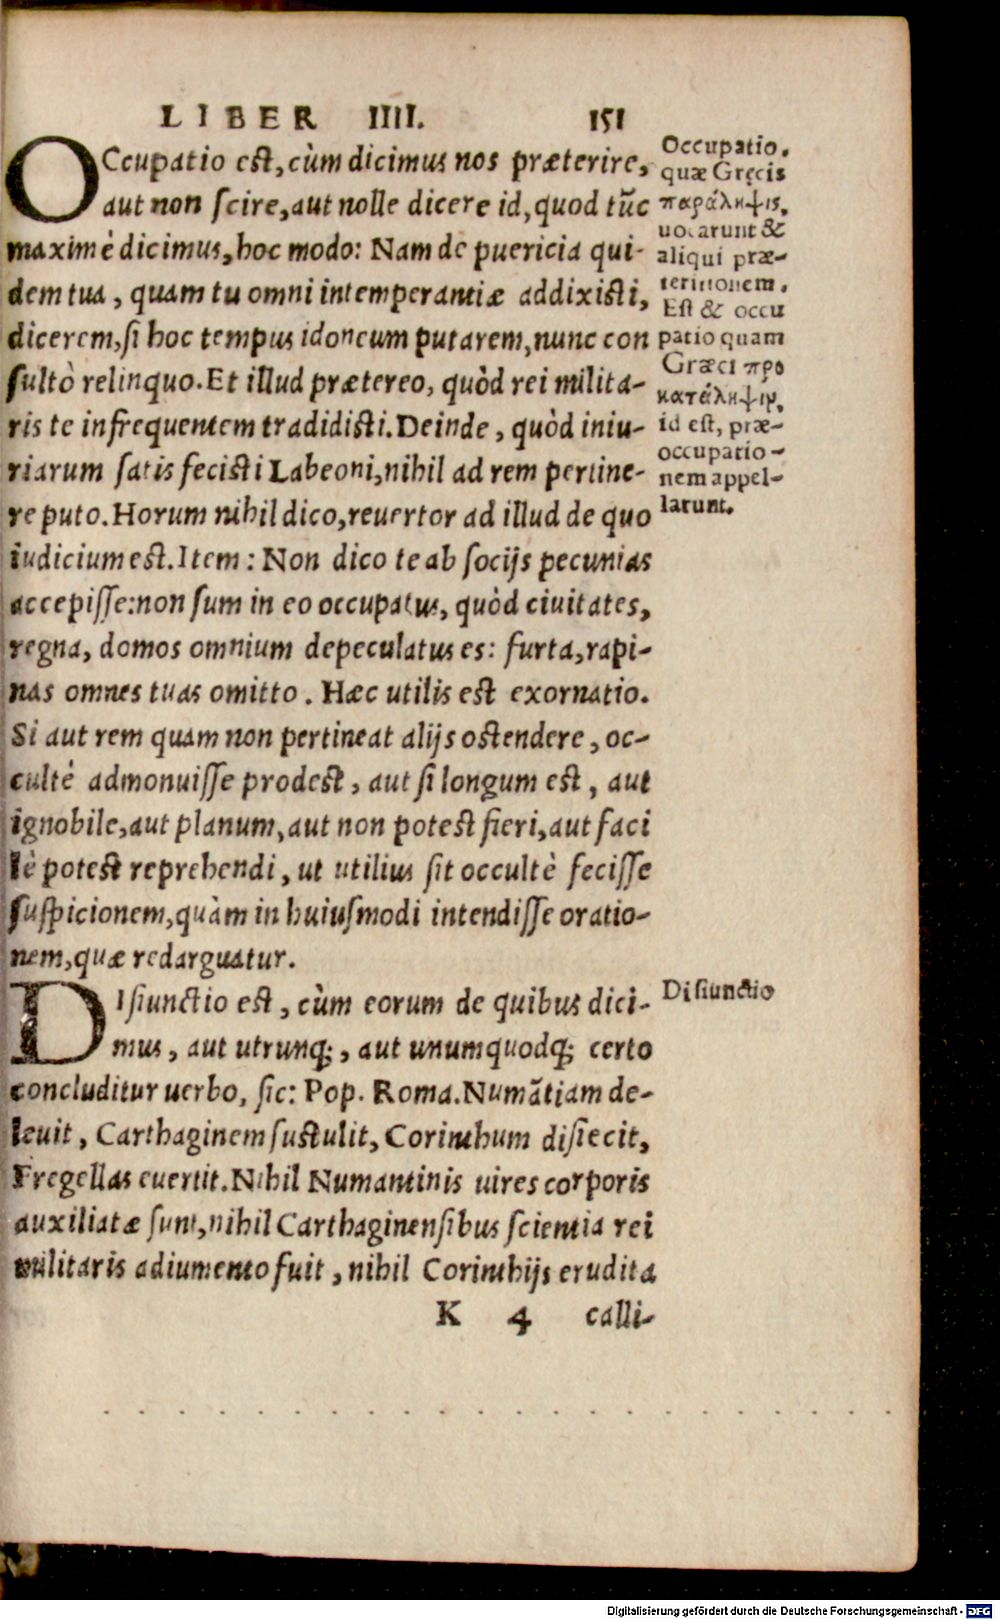 LIBER IIII. 151
OCcupatio est, cùm dicimus nos præterire,
aut non scire, aut nolle dicere id, quod tũc
maximè dicimus, hoc modo: Nam de puericia qui-
dem tua, quam tu omni intemperantiæ addixisti,
dicerem, si hoc tempus idoneum putarem, nunc con
sultò relinquo. Et illud prætereo, quòd rei milita-
ris te infrequentem tradidisti. Deinde, quòd iniu-
riarum satis fecisti Labeoni, nihil ad rem pertine-
re puto. Horum nihil dico, reuertor ad illud de quo
iudicium est. Item: Non dico te ab socijs pecunias
accepisse: non sum in eo occupatus, quòd ciuitates,
regna, domos omnium depeculatus es: furta, rapi-
nas omnes tuas omitto. Hæc utilis est exornatio.
Si aut rem quam non pertineat alijs ostendere, oc-
cultè admonuisse prodest, aut si longum est, aut
ignobile, aut planum, aut non potest fieri, aut faci
lè potest reprehendi, ut utilius sit occultè fecisse
suspicionem, quàm in huiusmodi intendisse oratio-
nem, quæ redarguatur.
DIsiunctio est, cùm eorum de quibus dici-
mus, aut utrunq;, aut unumquodq; certo
concluditur uerbo, sic: Pop. Roma. Numãtiam de-
leuit, Carthaginem sustulit, Corinthum disiecit,
Fregellas euertit. Nihil Numantinis uires corporis
auxiliatæ sunt, nihil Carthaginensibus scientia rei
militaris adiumento fuit, nihil Corinthijs erudita
K 4 calli-
Occupatio.
quæ Gręcis
παράληψις,
uocarunt &
aliqui præ-
teritionem.
Est & occu
patio quam
Græci προ
κατάληψιν,
id est, præ-
occupatio-
nem appel-
larunt.
Disiunctio
Digitalisierung gefördert durch die Deutsche Forschungsgemeinschaft - DFG